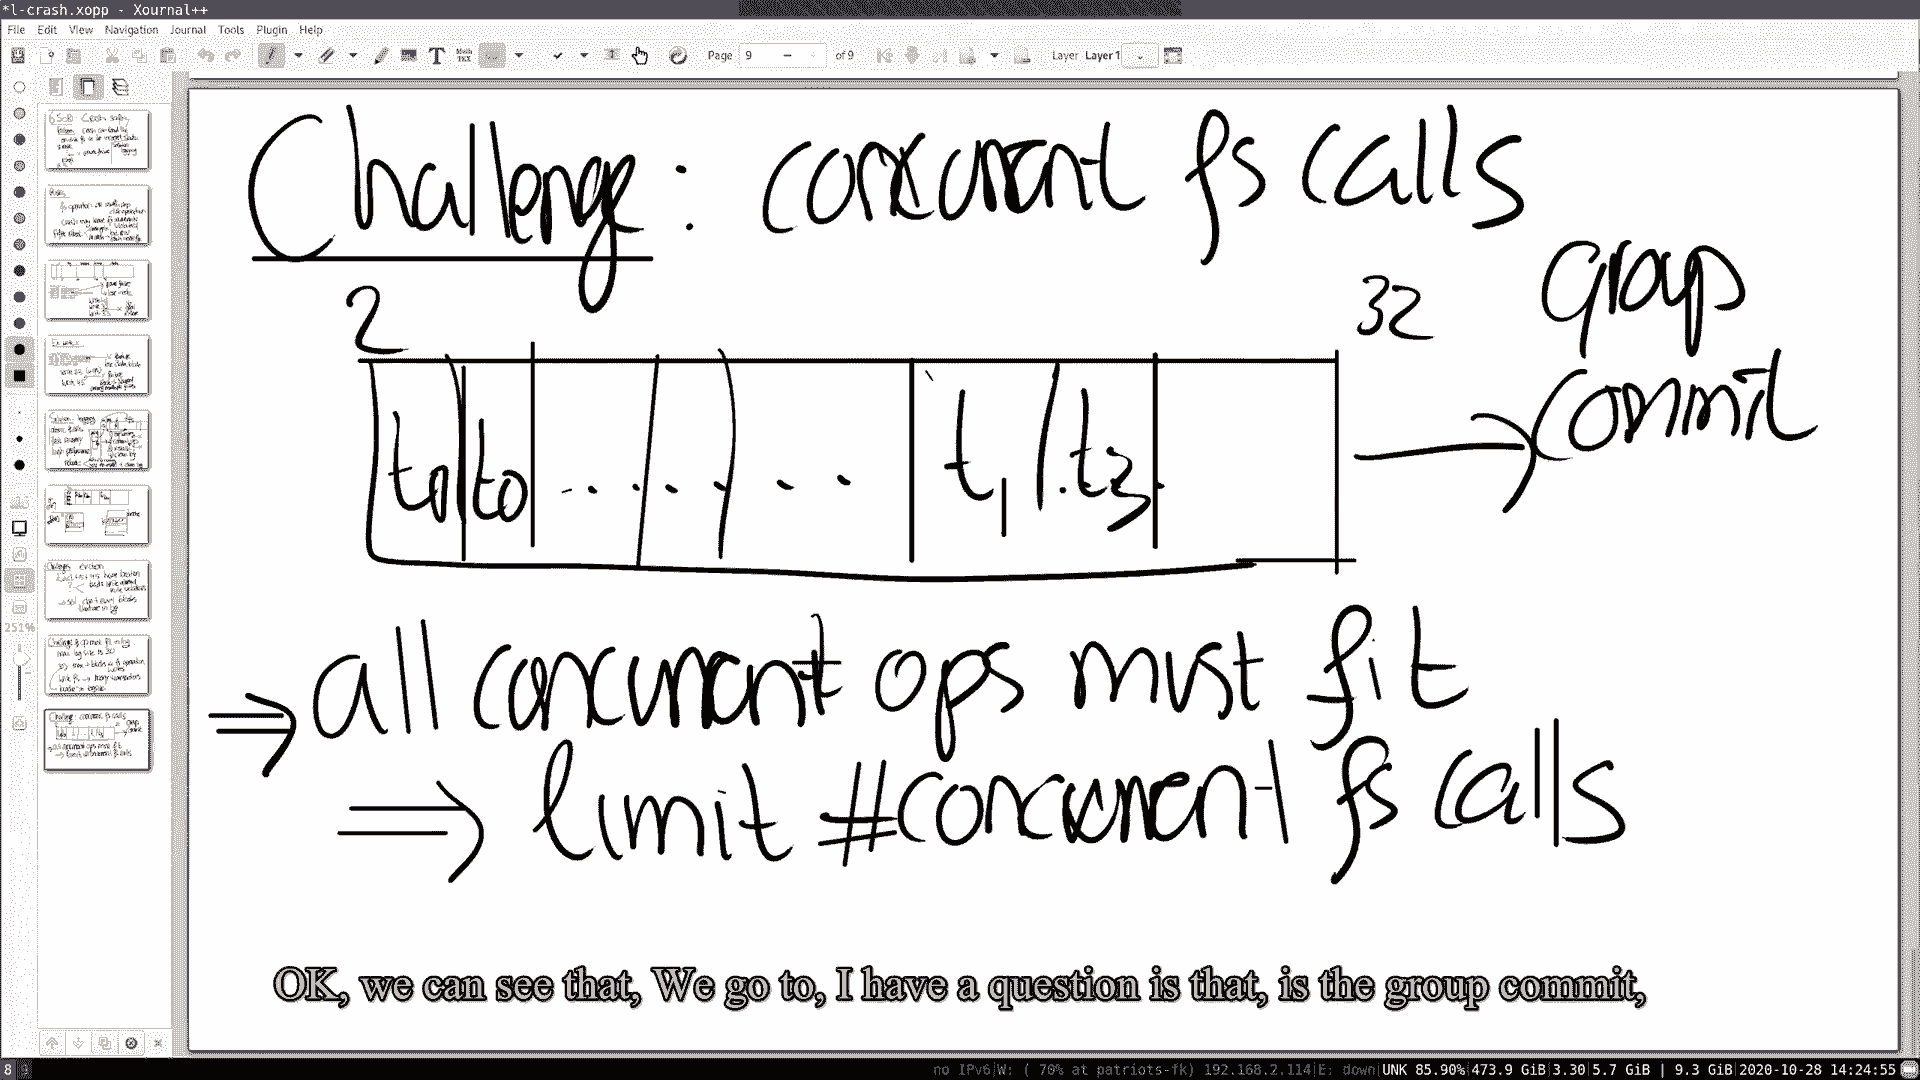 *l-crash.xopp - Xournal++
File Edit View Navigation Journal Tools Plugin Help
Page 9 of 9 Layer Layer 1
Challenge: concurrent fs calls
2 32 group
t0 t0 ..... . . t1 . t3 . commit
⇒ all concurrent ops must fit
⇒ limit #concurrent fs calls
251%
OK, we can see that, We go to, I have a question is that, is the group commit,
8 9 no IPv6|W: ( 70% at patriots-fk) 192.168.2.114|E: down|UNK 85.90%|473.9 GiB|3.30|5.7 GiB | 9.3 GiB|2020-10-28 14:24:55